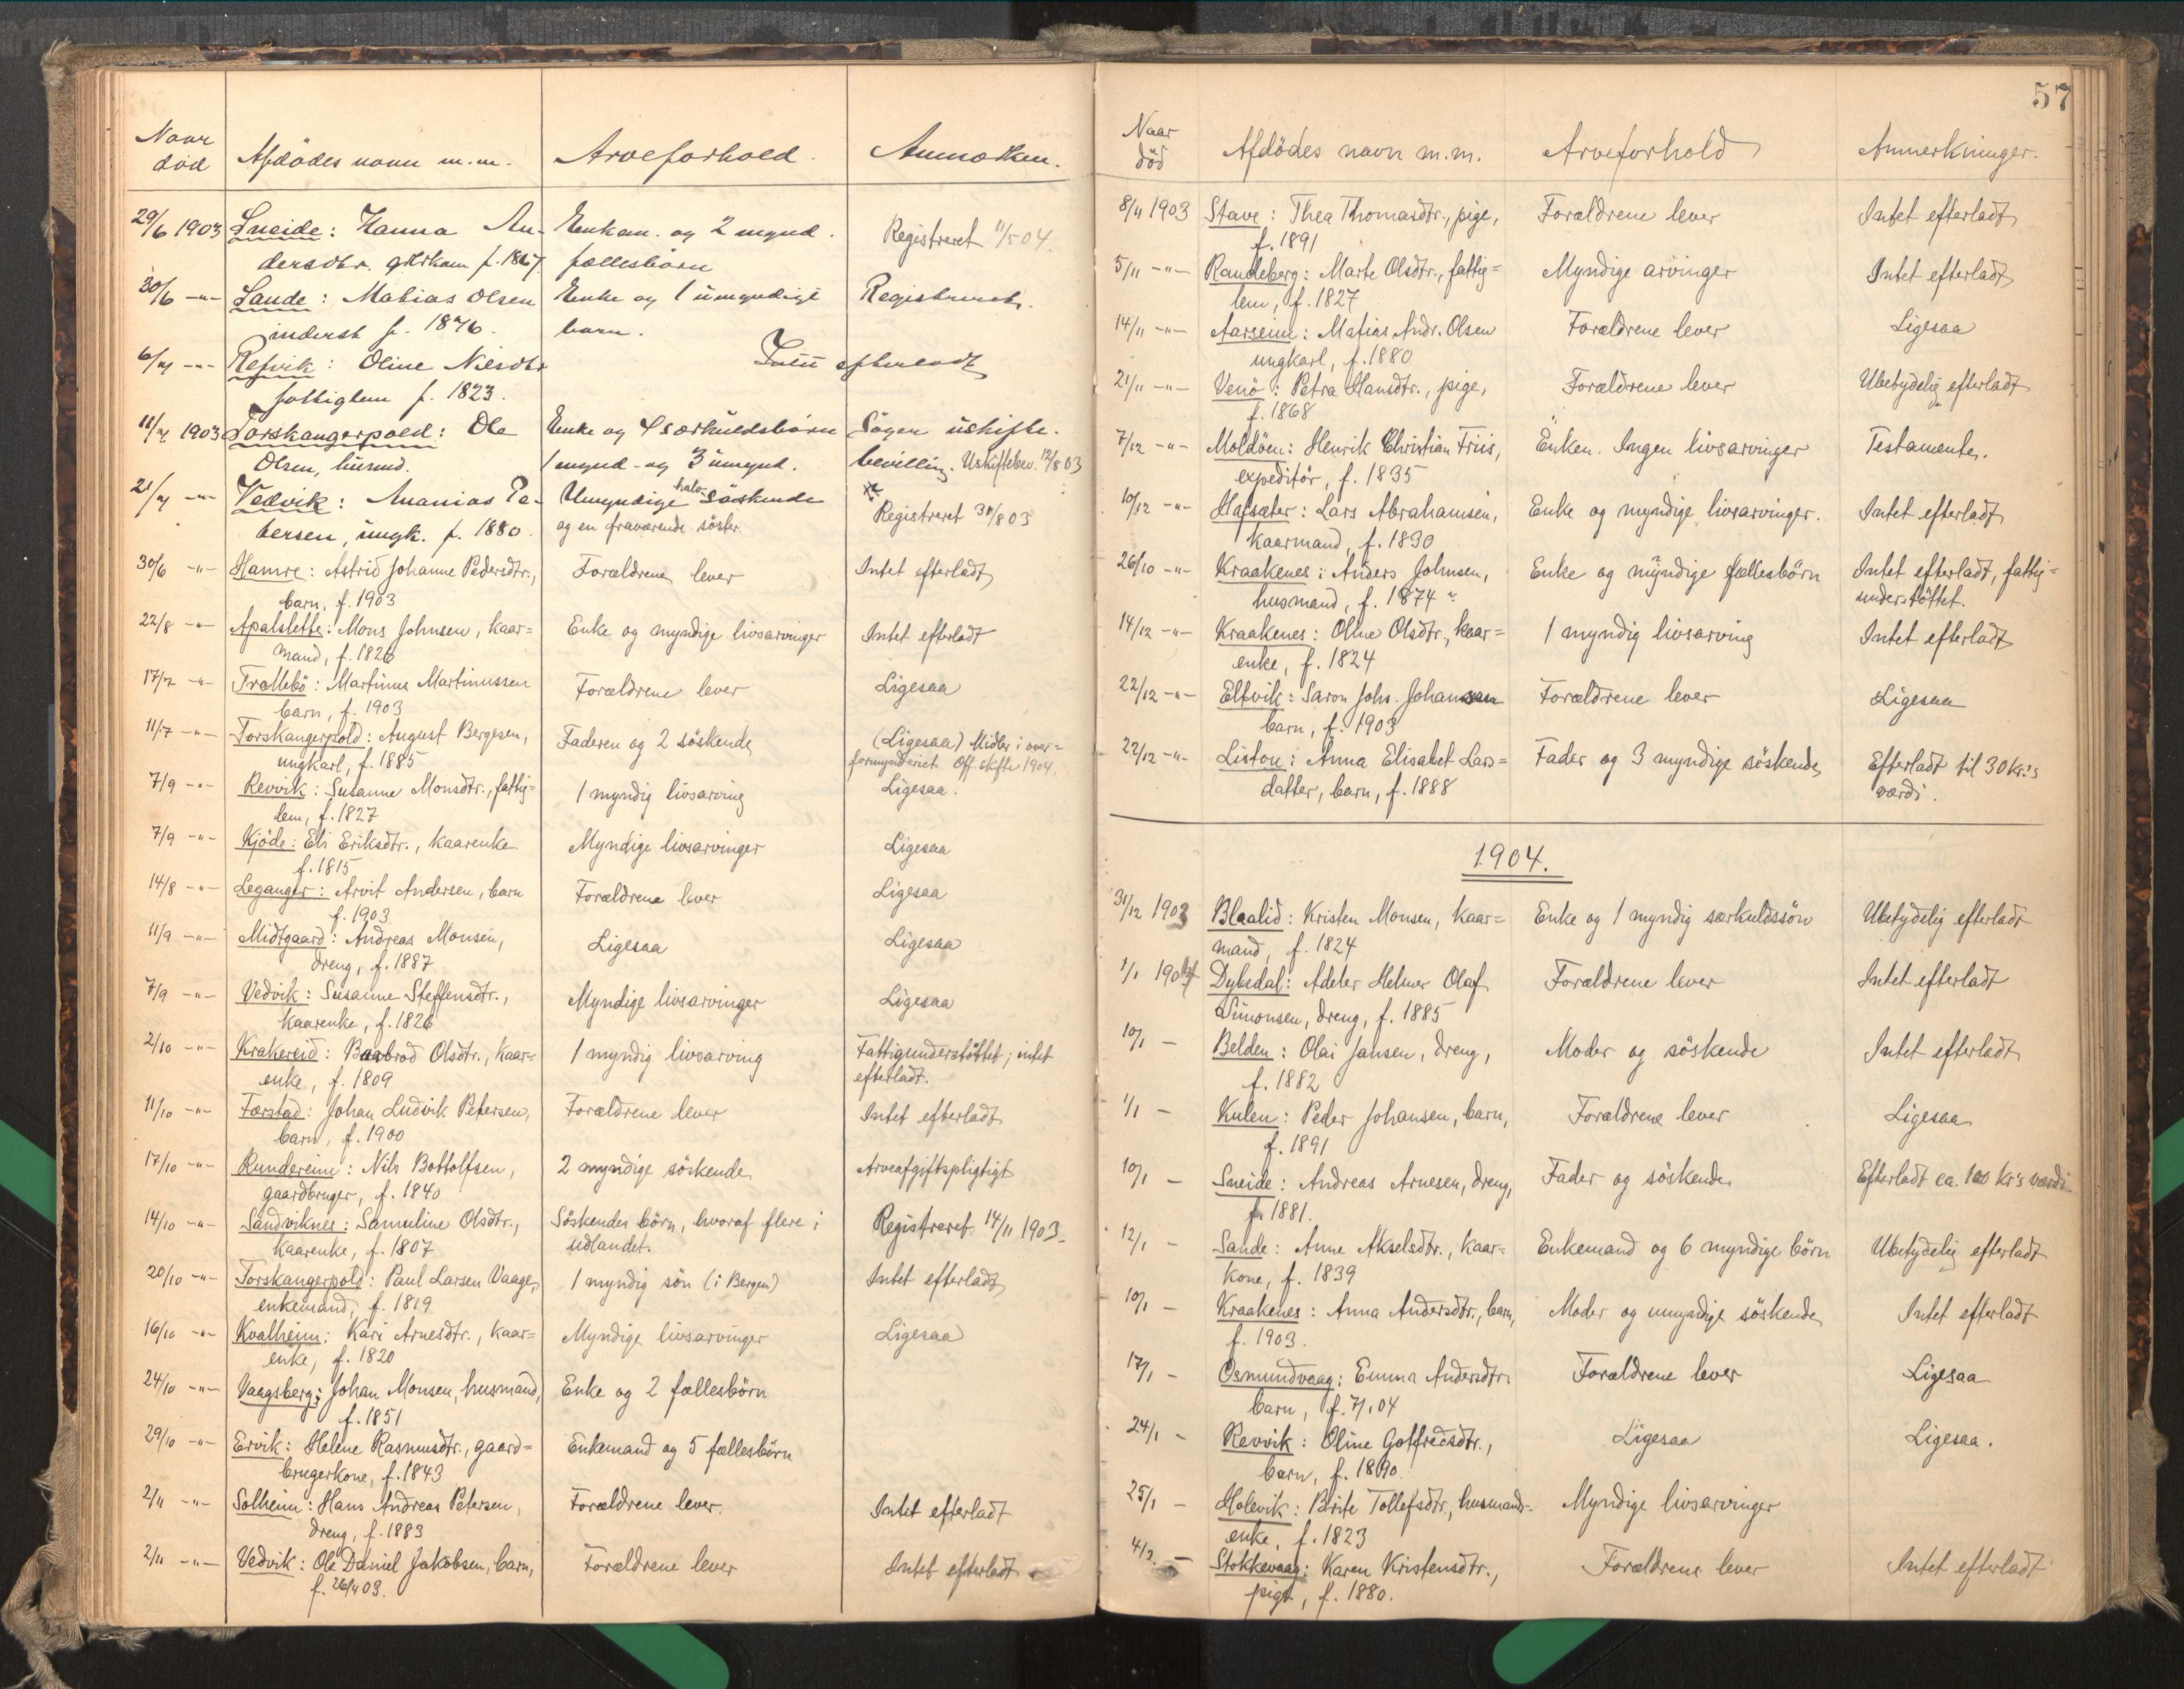 Naar
död
Afdödes navn m.m.
Arveforhold
Anmærkn.
29/6 1903 Sneide: Hanna An- Enkem. og 2 mynd. Registreret 11/5 04.
dersdtr. f. 1867 fællesbörn
30/6 -"- Sande: Matias Olsen Enke og 1 umyndigt Registreret.
inderst f. 1876. barn.
6/7 -"- Refvik: Oline Nilsdtr Intet efterladt
fattiglem f. 1823.
11/7 1903 Torskangerpold: Ole Enke og 4 særkuldsbörn Søgen uskifte-
Olsen, husmd. 1 mynd. og 3 umynd. bevilling. Uskiftebev. 12/8 03
21/7 -"- Vedvik: Ananias Pe- Umyndige halvsöskende
tersen, ungk. f. 1880. og en fraværende söster. Registreret 31/8 03
30/6 -"- Hamre: Astrid Johanne Pedersdtr., Forældrene lever Intet efterladt
barn, f. 1903
22/8 -"- Apalslette: Mons Johnsen, kaar= Enke og myndige livsarvinger Intet efterladt
mand, f. 1826
17/12 -"- Trællebö: Martinus Martinussen Forældrene lever Ligesaa
barn, f. 1903
11/7 -"- Torskangerpold: August Bergesen, Faderen og 2 söskende (Ligesaa) Midler i over=
ungkarl, f. 1885 formynderiet. Off. skifte 1904.
7/9 -"- Revvik: Susanne Monsdtr., fattig= 1 myndig livsarving Ligesaa.
lem, f. 1827
7/9 -"- Kjöde: Eli Eriksdtr., kaarenke Myndige livsarvinger Ligesaa
f. 1815
14/8 -"- Leganger: Arvit Andersen, barn Forældrene lever Ligesaa
f. 1903
11/9 -"- Midtgaard: Andreas Monsen, Ligesaa Ligesaa
dreng, f. 1887
7/9 -"- Vedvik: Susanne Steffensdtr., Myndige livsarvinger Ligesaa
kaarenke, f. 1826
2/10 -"- Krakereid: Barbrod Olsdtr., kaar= 1 myndig livsarving Fattigunderstöttet; intet
enke, f. 1809 efterladt.
11/10 -"- Færstad: Johan Ludvik Petersen, Forældrene lever Intet efterladt
barn, f. 1900
17/10 -"- Rundereim: Nils Bottolfsen, 2 myndige söskende Arveafgiftspligtigt
gaardbruger, f. 1840
14/10 -"- Sandviknes: Samuline Olsdtr., Söskendes börn, hvoraf flere i Registreret 14/11 1903.
kaarenke, f. 1807 udlandet.
20/10 -"- Torskangerpold: Paul Larsen Vaage, 1 myndig sön (i Bergen) Intet efterladt
enkemand, f. 1819
16/10 -"- Kvalheim: Kari Arnesdtr., kaar= Myndige livsarvinger Ligesaa
enke, f. 1820
24/10 -"- Vaagsberg: Johan Monsen, husmand, Enke og 2 fællesbörn
f. 1851
29/10 -"- Ervik: Helene Rasmusdtr., gaard= Enkemand og 5 fællesbörn
brugerkone, f. 1843
2/11 -"- Solheim: Hans Andreas Petersen, Forældrene lever. Intet efterladt
dreng, f. 1883
2/11 -"- Vedvik: Ole Daniel Jakobsen, barn, Forældrene lever Intet efterladt
f. 26/4 03.
57
Naar
död
Afdödes navn m.m.
Arveforhold
Anmerkninger.
8/11 1903 Stave: Thea Thomasdtr., pige, Forældrene lever Intet efterladt
f. 1891
5/11 -"- Raudeberg: Marte Olsdtr., fattig= Myndige arvinger Intet efterladt
lem, f. 1827
14/11 -"- Aarseim: Matias Andr. Olsen Forældrene lever Ligesaa
ungkarl, f. 1880
21/11 -"- Venö: Petra Hansdtr., pige, Forældrene lever Ubetydelig efterladt
f. 1868
7/12 -"- Moldöen: Henrik Christian Friis, Enken. Ingen livsarvinger Testamente.
expeditör, f. 1835
10/12 -"- Hafsæter: Lars Abrahamsen, Enke og myndige livsarvinger. Intet efterladt
kaarmand, f. 1830
26/10 -"- Kraakenes: Anders Johnsen, Enke og myndige fællesbörn Intet efterladt, fattig=
husmand, f. 1874 understöttet.
14/12 -"- Kraakenes: Oline Olsdtr., kaar= 1 myndig livsarving Intet efterladt
enke, f. 1824
22/12 -"- Eltvik: Saron Johs. Johansen Forældrene lever Ligesaa
barn, f. 1903
22/12 -"- Listou: Anna Elisabet Lars= Fader og 3 myndige söskende Efterladt til 30 kr.s
datter, barn, f. 1888 værdi.
1904.
31/12 1903 Blaalid: Kristen Monsen, kaar= Enke og 1 myndig særkuldssön Ubetydelig efterladt
mand, f. 1824
1/1 1904 Dybedal: Adeler Helmer Olaf Forældrene lever Intet efterladt
Simonsen, dreng, f. 1885
10/1 - Belden: Olai Jansen, dreng, Moder og söskende Intet efterladt
f. 1882
1/1 - Kulen: Peder Johansen, barn, Forældrene lever Ligesaa
f. 1891
10/1 - Sneide: Andreas Arnesen, dreng, Fader og söskende Efterladt ca. 100 kr's værdi
f. 1881.
12/1 - Sande: Anne Akselsdtr., kaar= Enkemand og 6 myndige börn Ubetydelig efterladt
kone, f. 1839
10/1 - Kraakenes: Anna Andersdtr., barn, Moder og umyndige söskende Intet efterladt
f. 1903.
17/1 - Osmundvaag: Emma Andersdtr. Forældrene lever Ligesaa
barn, f. 7/1 04
24/1 - Revvik: Oline Gotfredsdtr., Ligesaa Ligesaa.
barn, f. 1890.
25/1 - Holevik: Brite Tollefsdtr., husmands- Myndige livsarvinger
enke, f. 1823
4/2. - Stokkevaag: Karen Kristensdtr., Forældrene lever Intet efterladt
pige, f. 1880.